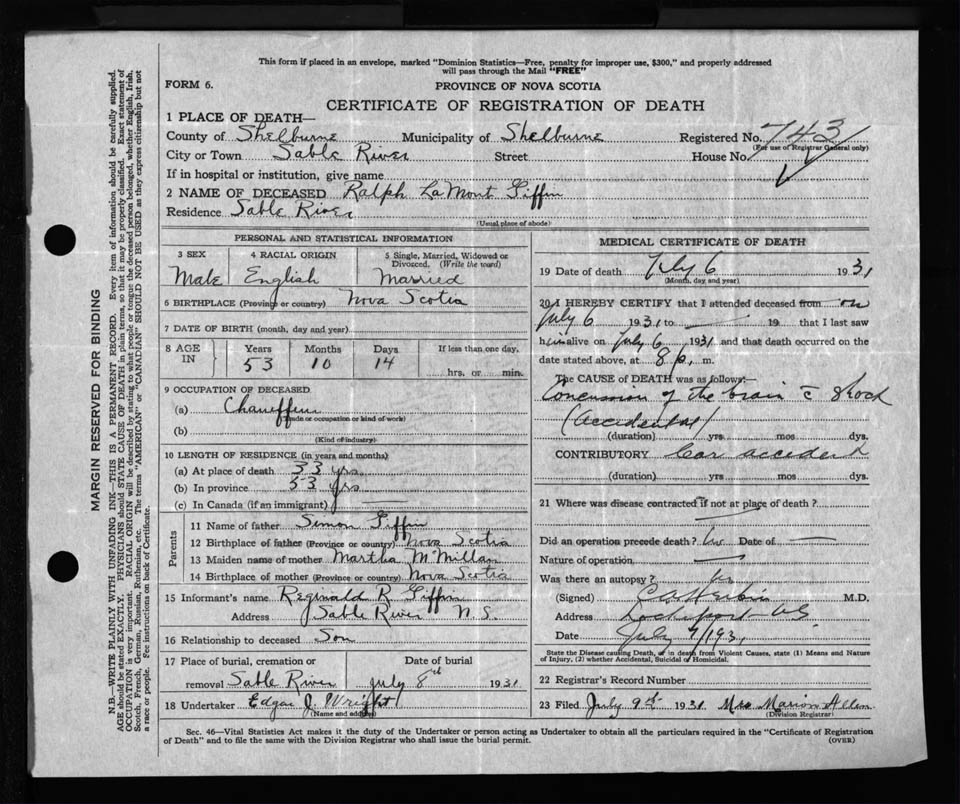 This form if placed in an envelope, marked "Dominion Statistics—Free, penalty for improper use, $300," and properly addressed
will pass through the Mail "FREE"
FORM 6.
PROVINCE OF NOVA SCOTIA
CERTIFICATE OF REGISTRATION OF DEATH
1 PLACE OF DEATH—
County of Shelburne Municipality of Shelburne Registered No. 743
(For use of Registrar General only)
City or Town Sable River Street House No.
If in hospital or institution, give name
2 NAME OF DECEASED Ralph LaMont Giffin
Residence Sable River
(Usual place of abode)
PERSONAL AND STATISTICAL INFORMATION
3 SEX 4 RACIAL ORIGIN 5 Single, Married, Widowed or
Divorced. (Write the word)
Male English Married
6 BIRTHPLACE (Province or country) Nova Scotia
7 DATE OF BIRTH (month, day and year)
8 AGE IN Years Months Days If less than one day.
53 10 14 hrs. or min.
9 OCCUPATION OF DECEASED
(a) Chauffeur
(Trade or occupation or kind of work)
(b)
(Kind of industry)
10 LENGTH OF RESIDENCE (in years and months)
(a) At place of death 33 yrs
(b) In province 53 yrs
(c) In Canada (if an immigrant) —
Parents
11 Name of father Simon Giffin
12 Birthplace of father (Province or country) Nova Scotia
13 Maiden name of mother Martha McMillan
14 Birthplace of mother (Province or country) Nova Scotia
15 Informant's name Reginald R. Giffin
Address Sable River N.S.
16 Relationship to deceased Son
17 Place of burial, cremation or Date of burial
removal Sable River July 8th 1931
18 Undertaker Edgar J. Wright
(Name and address)
MEDICAL CERTIFICATE OF DEATH
19 Date of death July 6 1931
(Month, day and year)
20 I HEREBY CERTIFY that I attended deceased from on
July 6 1931 to — 19 that I last saw
him alive on July 6 1931 and that death occurred on the
date stated above, at 8 p. m.
The CAUSE OF DEATH was as follows:—
Concussion of the brain c̄ shock
(Accidental)
(duration) yrs mos dys.
CONTRIBUTORY Car accident
(duration) yrs. mos dys.
21 Where was disease contracted if not at place of death?
—
Did an operation precede death? No Date of —
Nature of operation —
Was there an autopsy?
(Signed) M.D.
Address Lockeport NS
Date July 7/1931
State the Disease causing Death, or in death from Violent Causes, state (1) Means and Nature
of Injury, (2) whether Accidental, Suicidal or Homicidal.
22 Registrar's Record Number
23 Filed July 9th 1931 Mrs Marion Allen
(Division Registrar)
Sec. 46—Vital Statistics Act makes it the duty of the Undertaker or person acting as Undertaker to obtain all the particulars required in the "Certificate of Registration
of Death" and to file the same with the Division Registrar who shall issue the burial permit. (OVER)
MARGIN RESERVED FOR BINDING
N.B.—WRITE PLAINLY WITH UNFADING INK—THIS IS A PERMANENT RECORD. Every item of information should be carefully supplied.
AGE should be stated EXACTLY. PHYSICIANS should STATE CAUSE OF DEATH in plain terms, so that it may be properly classified. Exact statement of
OCCUPATION is very important. RACIAL ORIGIN will be described by stating to what people or tongue the deceased person belonged, whether English, Irish,
Scotch, French, German, Russian, Ruthenian, etc. The terms "AMERICAN" or "CANADIAN" SHOULD NOT BE USED as they express citizenship but not
a race or people. Fee instructions on back of Certificate.